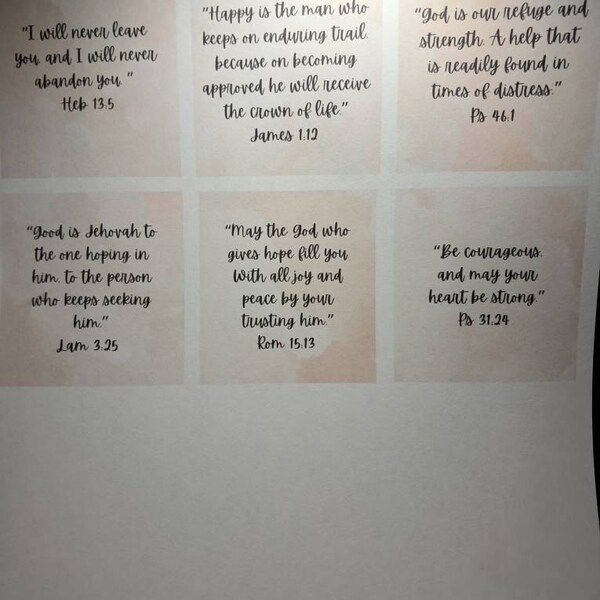 "I will never leave
you, and I will never
abandon you."
Heb 13:5
"Happy is the man who
keeps on enduring trail,
because on becoming
approved he will receive
the crown of life."
James 1:12
"God is our refuge and
strength. A help that
is readily found in
times of distress."
Ps 46:1
"Good is Jehovah to
the one hoping in
him, to the person
who keeps seeking
him."
Lam 3:25
"May the God who
gives hope fill you
With all joy and
peace by your
trusting him."
Rom 15:13
"Be courageous,
and may your
heart be strong."
Ps 31:24